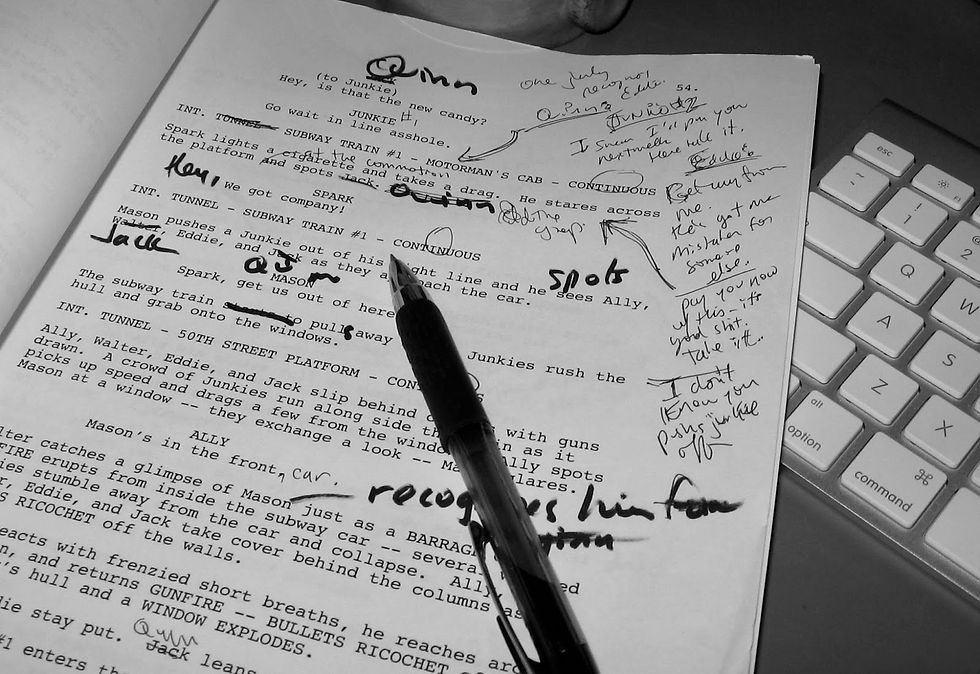 Quinn
(to Junkie)
Hey, is that the new candy?
54.
JUNKIE #1
Go wait in line asshole.
INT. TUNNEL - SUBWAY TRAIN #1 - MOTORMAN'S CAB - CONTINUOUS
Spark lights a cigarette and takes a drag. He stares across
the platform and spots Jack. Quinn
at the commotion
SPARK
Hey, We got company!
INT. TUNNEL - SUBWAY TRAIN #1 - CONTINUOUS
Mason pushes a Junkie out of his right line and he sees Ally,
Walter, Eddie, and Jack as they approach the car.
Jack
spots
MASON
Spark, get us out of here
The subway train to pulls away Junkies rush the
hull and grab onto the windows.
INT. TUNNEL - 50TH STREET PLATFORM -
Ally, Walter, Eddie, and Jack slip behind with guns
drawn. A crowd of Junkies run along side the train as it
picks up speed and drags a few from the window Ally spots
Mason at a window -- they exchange a look -- glares.
ALLY
Mason's in the front, car.
catches a glimpse of Mason just as a BARRAGE
erupts from inside the subway car -- several
stumble away from the car and collapse. Ally,
Eddie, and Jack take cover behind the columns as
RICOCHET off the walls.
recognizes him from
with frenzied short breaths, he reaches
and returns GUNFIRE -- BULLETS RICOCHET
hull and a WINDOW EXPLODES.
stay put.
Quinn
Jack leans
#1 enters
I swear I'll pay you
next week
Get away from
me.
You got me
mistaken for
someone
else.
pay you now
of this - it's
your shit.
take it.
I don't
know you
Pushes junkie
off
esc
~
!
@
2
Q
W
A
S
Z
X
alt
option
⌘
command